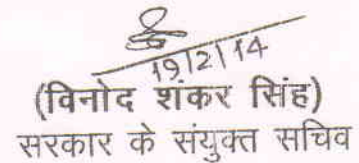 19/2/14
(विनोद शंकर सिंह)
सरकार के संयुक्त सचिव